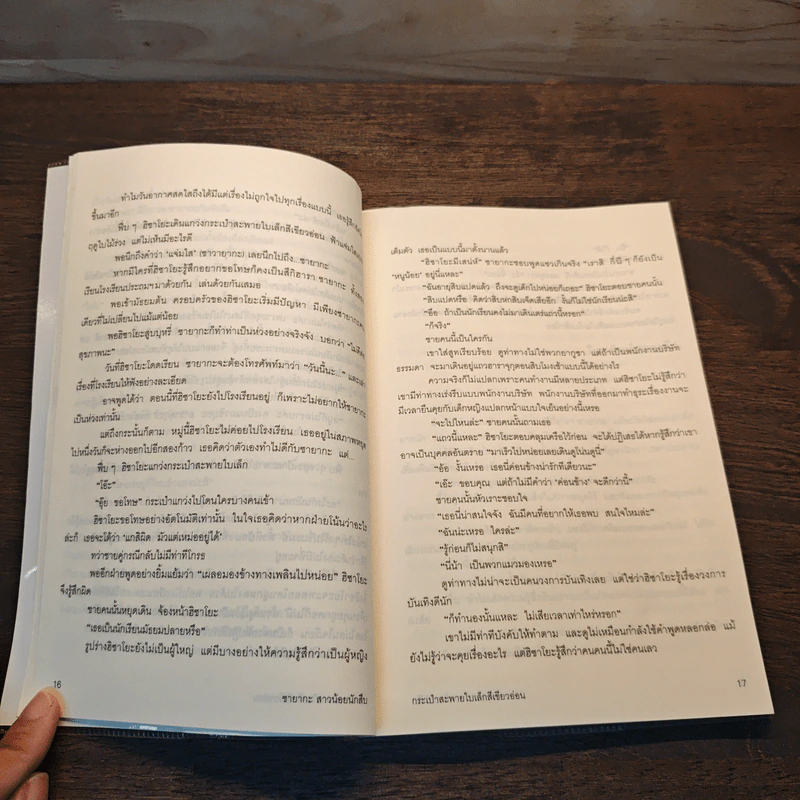 ทำไมวันอากาศสดใสถึงได้มีแต่เรื่องไม่ถูกใจไปทุกเรื่องแบบนี้ เธอรู้สึก
ขึ้นมาอีก
พึ่บ ๆ ฮิซาโยะเดินแกว่งกระเป๋าสะพายใบเล็กสีเขียวอ่อน ฟ้าแจ่มใส
ฤดูใบไม้ร่วง แต่ไม่เห็นมีอะไรดี
พอนึกถึงคำว่า "แจ่มใส" (ซาวายากะ) เลยนึกไปถึง...ซายากะ
หากมีใครที่ฮิซาโยะรู้สึกอยากขอโทษก็คงเป็นสึกิฮารา ซายากะ ทั้งสอง
เรียนโรงเรียนประถมฯมาด้วยกัน เล่นด้วยกันเสมอ
พอเข้ามัธยมต้น ครอบครัวของฮิซาโยะเริ่มมีปัญหา มีเพียงซายากะ
เดียวที่ไม่เปลี่ยนไปแม้แต่น้อย
พอฮิซาโยะสูบบุหรี่ ซายากะก็ทำท่าเป็นห่วงอย่างจริงจัง บอกว่า "ไม่ดีต่อ
สุขภาพนะ"
วันที่ฮิซาโยะโดดเรียน ซายากะจะต้องโทรศัพท์มาว่า "วันนี้นะ..." และเล่า
เรื่องที่โรงเรียนให้ฟังอย่างละเอียด
อาจพูดได้ว่า ตอนนี้ที่ฮิซาโยะยังไปโรงเรียนอยู่ ก็เพราะไม่อยากให้ซายากะ
เป็นห่วงเท่านั้น
แต่ถึงกระนั้นก็ตาม หมู่นี้ฮิซาโยะไม่ค่อยไปโรงเรียน เธออยู่ในสภาพหยุด
ไปหนึ่งวันก็จะห่างออกไปอีกสองก้าว เธอคิดว่าตัวเองทำไม่ดีกับซายากะ แต่...
พึ่บ ๆ ฮิซาโยะแกว่งกระเป๋าสะพายใบเล็ก
"โอ๊ะ"
"อุ๊ย ขอโทษ" กระเป๋าแกว่งไปโดนใครบางคนเข้า
ฮิซาโยะขอโทษอย่างอัตโนมัติเท่านั้น ในใจเธอคิดว่าหากฝ่ายโน้นว่าอะไร
ล่ะก็ เธอจะได้ว่า 'แกสิผิด มัวแต่เหม่ออยู่ได้'
ทว่าชายคู่กรณีกลับไม่มีท่าทีโกรธ
พออีกฝ่ายพูดอย่างยิ้มแย้มว่า "เผลอมองข้างทางเพลินไปหน่อย" ฮิซาโยะ
จึงรู้สึกผิด
ชายคนนั้นหยุดเดิน จ้องหน้าฮิซาโยะ
"เธอเป็นนักเรียนมัธยมปลายหรือ"
รูปร่างฮิซาโยะยังไม่เป็นผู้ใหญ่ แต่มีบางอย่างให้ความรู้สึกว่าเป็นผู้หญิง
16
ซายากะ สาวน้อยนักสืบ
เต็มตัว เธอเป็นแบบนี้มาตั้งนานแล้ว
"ฮิซาโยะมีเสน่ห์" ซายากะชอบพูดแซวเกินจริง "เราสิ กี่ปี ๆ ก็ยังเป็น
'หนูน้อย' อยู่นี่แหละ"
"ฉันอายุสิบแปดแล้ว ถึงจะดูเด็กไปหน่อยก็เถอะ" ฮิซาโยะตอบชายคนนั้น
"สิบแปดหรือ คิดว่าสิบหกสิบเจ็ดเสียอีก งั้นก็ไม่ใช่นักเรียนน่ะสิ"
"อือ ถ้าเป็นนักเรียนคงไม่มาเดินแตร่แถวนี้หรอก"
"ก็จริง"
ชายคนนี้เป็นใครกัน
เขาใส่สูทเรียบร้อย ดูท่าทางไม่ใช่พวกยากูซา แต่ถ้าเป็นพนักงานบริษัท
ธรรมดา จะมาเดินอยู่แถวฮาราจุกุตอนสิบโมงเช้าแบบนี้ได้อย่างไร
ความจริงก็ไม่แปลกเพราะคนทำงานมีหลายประเภท แต่ฮิซาโยะไม่รู้สึกว่า
เขามีท่าทางเร่งรีบแบบพนักงานบริษัท พนักงานบริษัทที่ออกมาทำธุระเรื่องงานจะ
มีเวลายืนคุยกับเด็กหญิงแปลกหน้าแบบใจเย็นอย่างนี้เหรอ
"จะไปไหนล่ะ" ชายคนนั้นถามเธอ
"แถวนี้แหละ" ฮิซาโยะตอบคลุมเครือไว้ก่อน จะได้ปฏิเสธได้หากรู้สึกว่าเขา
อาจเป็นบุคคลอันตราย "มาเร็วไปหน่อยเลยเดินดูโน่นดูนี่"
"อ้อ งั้นเหรอ เธอนี่ค่อนข้างน่ารักทีเดียวนะ"
"เอ๊ะ ขอบคุณ แต่ถ้าไม่มีคำว่า 'ค่อนข้าง' จะดีกว่านี้"
ชายคนนั้นหัวเราะชอบใจ
"เธอนี่น่าสนใจจัง ฉันมีคนที่อยากให้เธอพบ สนใจไหมล่ะ"
"ฉันน่ะเหรอ ใครล่ะ"
"รู้ก่อนก็ไม่สนุกสิ"
"นี่น้า เป็นพวกแมวมองเหรอ"
ดูท่าทางไม่น่าจะเป็นคนวงการบันเทิงเลย แต่ใช่ว่าฮิซาโยะรู้เรื่องวงการ
บันเทิงดีนัก
"ก็ทำนองนั้นแหละ ไม่เสียเวลาเท่าไหร่หรอก"
เขาไม่มีท่าทีบังคับให้ทำตาม และดูไม่เหมือนกำลังใช้คำพูดหลอกล่อ แม้
ยังไม่รู้ว่าจะคุยเรื่องอะไร แต่ฮิซาโยะรู้สึกว่าคนคนนี้ไม่ใช่คนเลว
กระเป๋าสะพายใบเล็กสีเขียวอ่อน
17